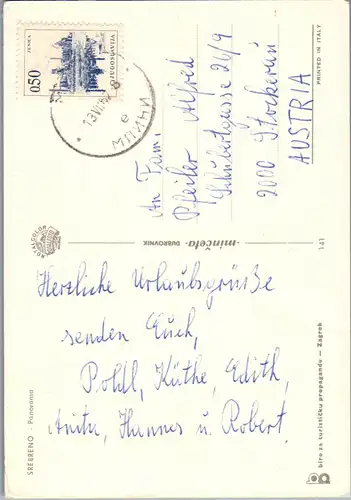 ZENICA
0.50
JUGOSLAVIJA
МЛИНИ
An Fam.
Pfeiler Alfred
Schubertgasse 26/9
2000 Stockerau
AUSTRIA
PRINTED IN ITALY
minčeta - DUBROVNIK
141
Herzliche Urlaubsgrüße
senden Euch,
Poldl, Käthe, Edith,
Anita, Hannes u. Robert
SREBRENO - Panorama
biro za turističku propagandu — Zagreb